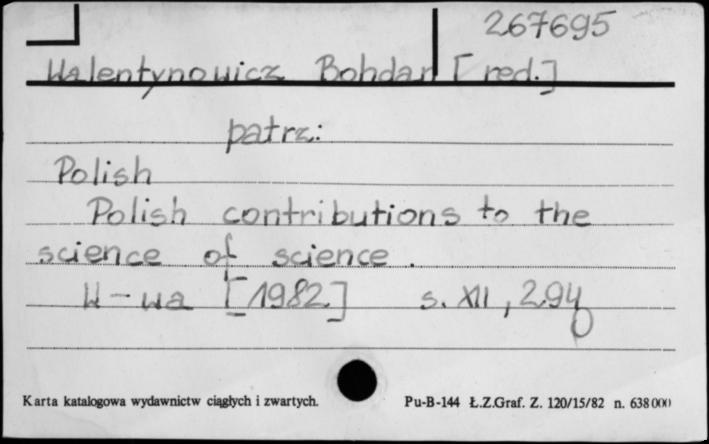 267695
Walentynowicz Bohdan [red.]
patrz:
Polish
Polish contributions to the
science of science.
W-wa [1982] s. XII, 294
Karta katalogowa wydawnictw ciągłych i zwartych.
Pu-B-144 Ł.Z.Graf. Z. 120/15/82 n. 638000